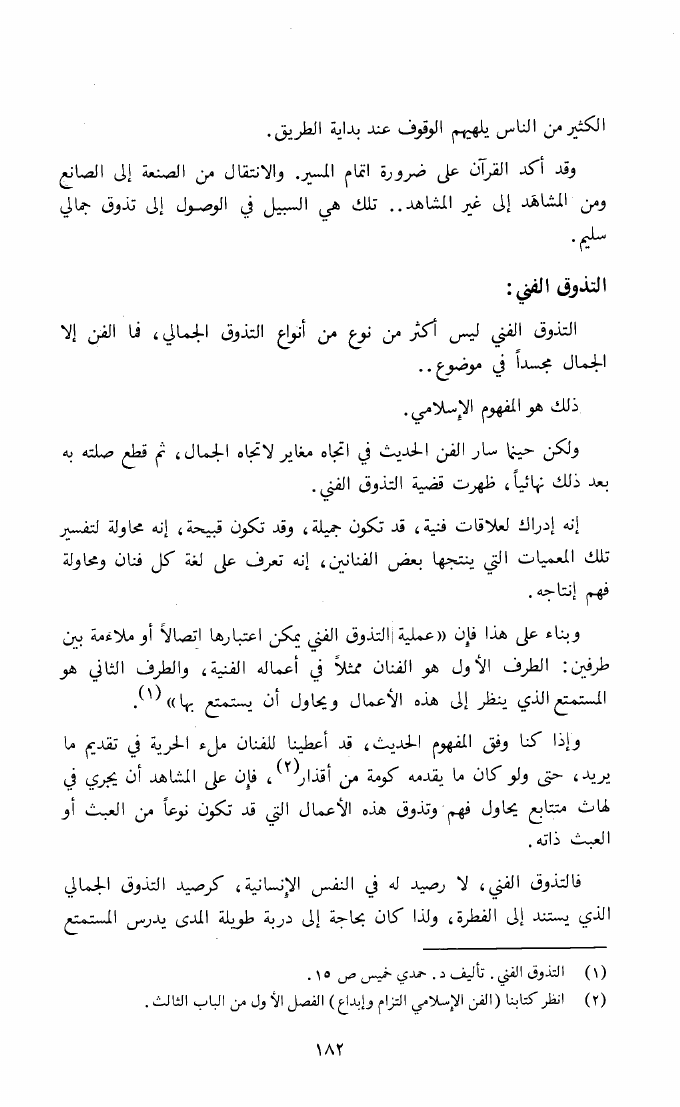 الكثير من الناس يلهيهم الوقوف عند بداية الطريق.
وقد أكد القرآن على ضرورة اتمام المسير. والانتقال من الصنعة إلى الصانع
ومن المشاهَد إلى غير المشاهد.. تلك هي السبيل في الوصول إلى تذوق جمالي
سليم.
التذوق الفني:
التذوق الفني ليس أكثر من نوع من أنواع التذوق الجمالي، فما الفن إلا
الجمال مجسداً في موضوع..
ذلك هو المفهوم الإسلامي.
ولكن حينما سار الفن الحديث في اتجاه مغاير لاتجاه الجمال، ثم قطع صلته به
بعد ذلك نهائياً، ظهرت قضية التذوق الفني.
إنه إدراك لعلاقات فنية، قد تكون جميلة، وقد تكون قبيحة، إنه محاولة لتفسير
تلك المعميات التي ينتجها بعض الفنانين، إنه تعرف على لغة كل فنان ومحاولة
فهم إنتاجه.
وبناء على هذا فإن «عملية التذوق الفني يمكن اعتبارها اتصالاً أو ملاءمة بين
طرفين: الطرف الأول هو الفنان ممثلاً في أعماله الفنية، والطرف الثاني هو
المستمتع الذي ينظر إلى هذه الأعمال ويحاول أن يستمتع بها»(١).
وإذا كنا وفق المفهوم الحديث، قد أعطينا للفنان ملء الحرية في تقديم ما
يريد، حتى ولو كان ما يقدمه كومة من أقذار(٢)، فإن على المشاهد أن يجري في
لهاث متتابع يحاول فهم وتذوق هذه الأعمال التي قد تكون نوعاً من العبث أو
العبث ذاته.
فالتذوق الفني، لا رصيد له في النفس الإنسانية، كرصيد التذوق الجمالي
الذي يستند إلى الفطرة، ولذا كان بحاجة إلى دربة طويلة المدى يدرس المستمتع
(١) التذوق الفني. تأليف د. حمدي خميس ص ١٥.
(٢) انظر كتابنا (الفن الإسلامي التزام وإبداع) الفصل الأول من الباب الثالث.
١٨٢